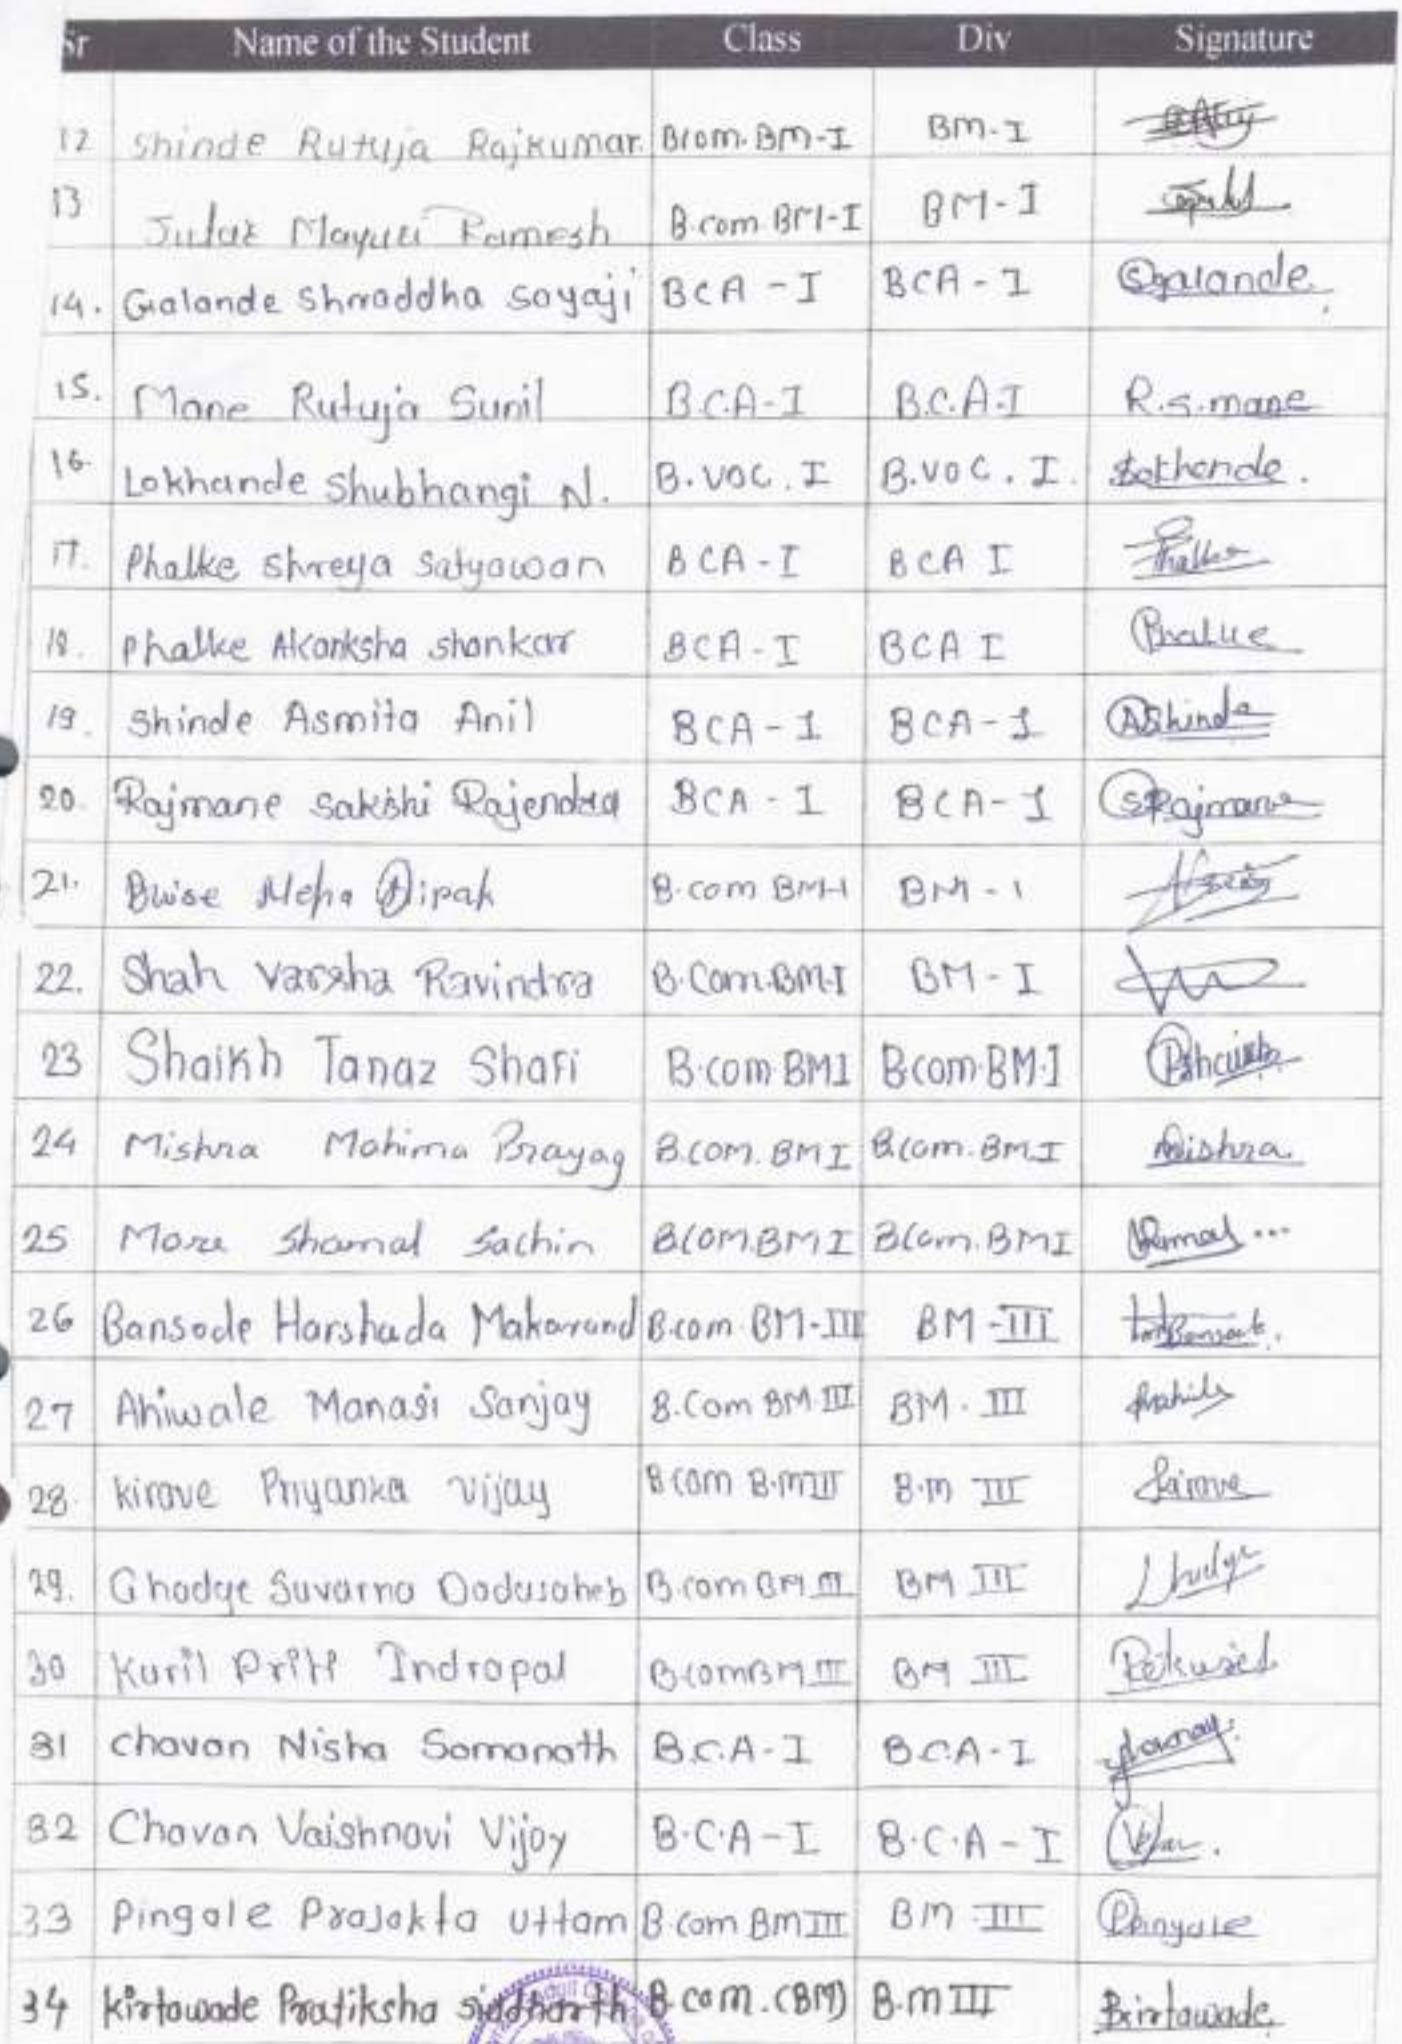 Sr Name of the Student Class Div Signature
12 Shinde Rutuja Rajkumar. Bcom. BM-I BM-I
13 Jutar Mayuri Ramesh B.com BM-I BM-I
14. Galande Shraddha Sayaji BCA - I BCA - I Sgalande.
15. Mane Rutuja Sunil B.C.A-I B.C.A.I R.S.mane
16. Lokhande Shubhangi N. B.VOC. I B.VOC. I. Slokhande.
17. Phalke Shreya Satyawan BCA - I BCA I Phalke
18. Phalke Akanksha Shankar BCA - I BCA I Phalke
19. Shinde Asmita Anil BCA - 1 BCA - 1 AShinde
20. Rajmane Sakshi Rajendra BCA - 1 BCA - 1 SRajmane
21. Neha Dipak B.com BM-I BM - 1
22. Shah Varsha Ravindra B.Com.BM.I BM - I
23 Shaikh Tanaz Shafi B.com BMI B.com.BM.I
24 Mishra Mahima Prayag B.com. BMI B.com. BMI Mishra.
25 More Shamal Sachin B.COM.BMI B.Com. BMI
26 Bansode Harshada Makarand B.com. BM-III BM-III
27 Ahiwale Manasi Sanjay B.Com BM III BM. III
28. Kirave Priyanka Vijay B.com B.M III B.M III Kirave
29. Ghadge Suvarna Dadasaheb B.com BM III BM III
30 Kuril Priti Indrapal B.com BM III BM III
31 Chavan Nisha Somanath B.C.A-I B.C.A-I
32 Chavan Vaishnavi Vijay B.C.A - I B.C.A - I
33 Pingale Prajakta Uttam B.com BM III BM III
34 Kirtawade Pratiksha Siddharth B.com. (BM) B.M III